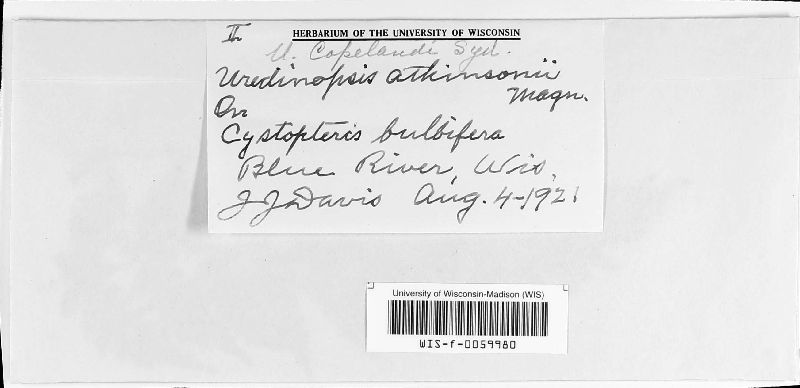 II HERBARIUM OF THE UNIVERSITY OF WISCONSIN
U. Copelandi Syd.
Uredinopsis atkinsonii
Magn.
On
Cystopteris bulbifera
Blue River, Wis.
J J Davis Aug. 4-1921
University of Wisconsin-Madison (WIS)
WIS-f-0059980